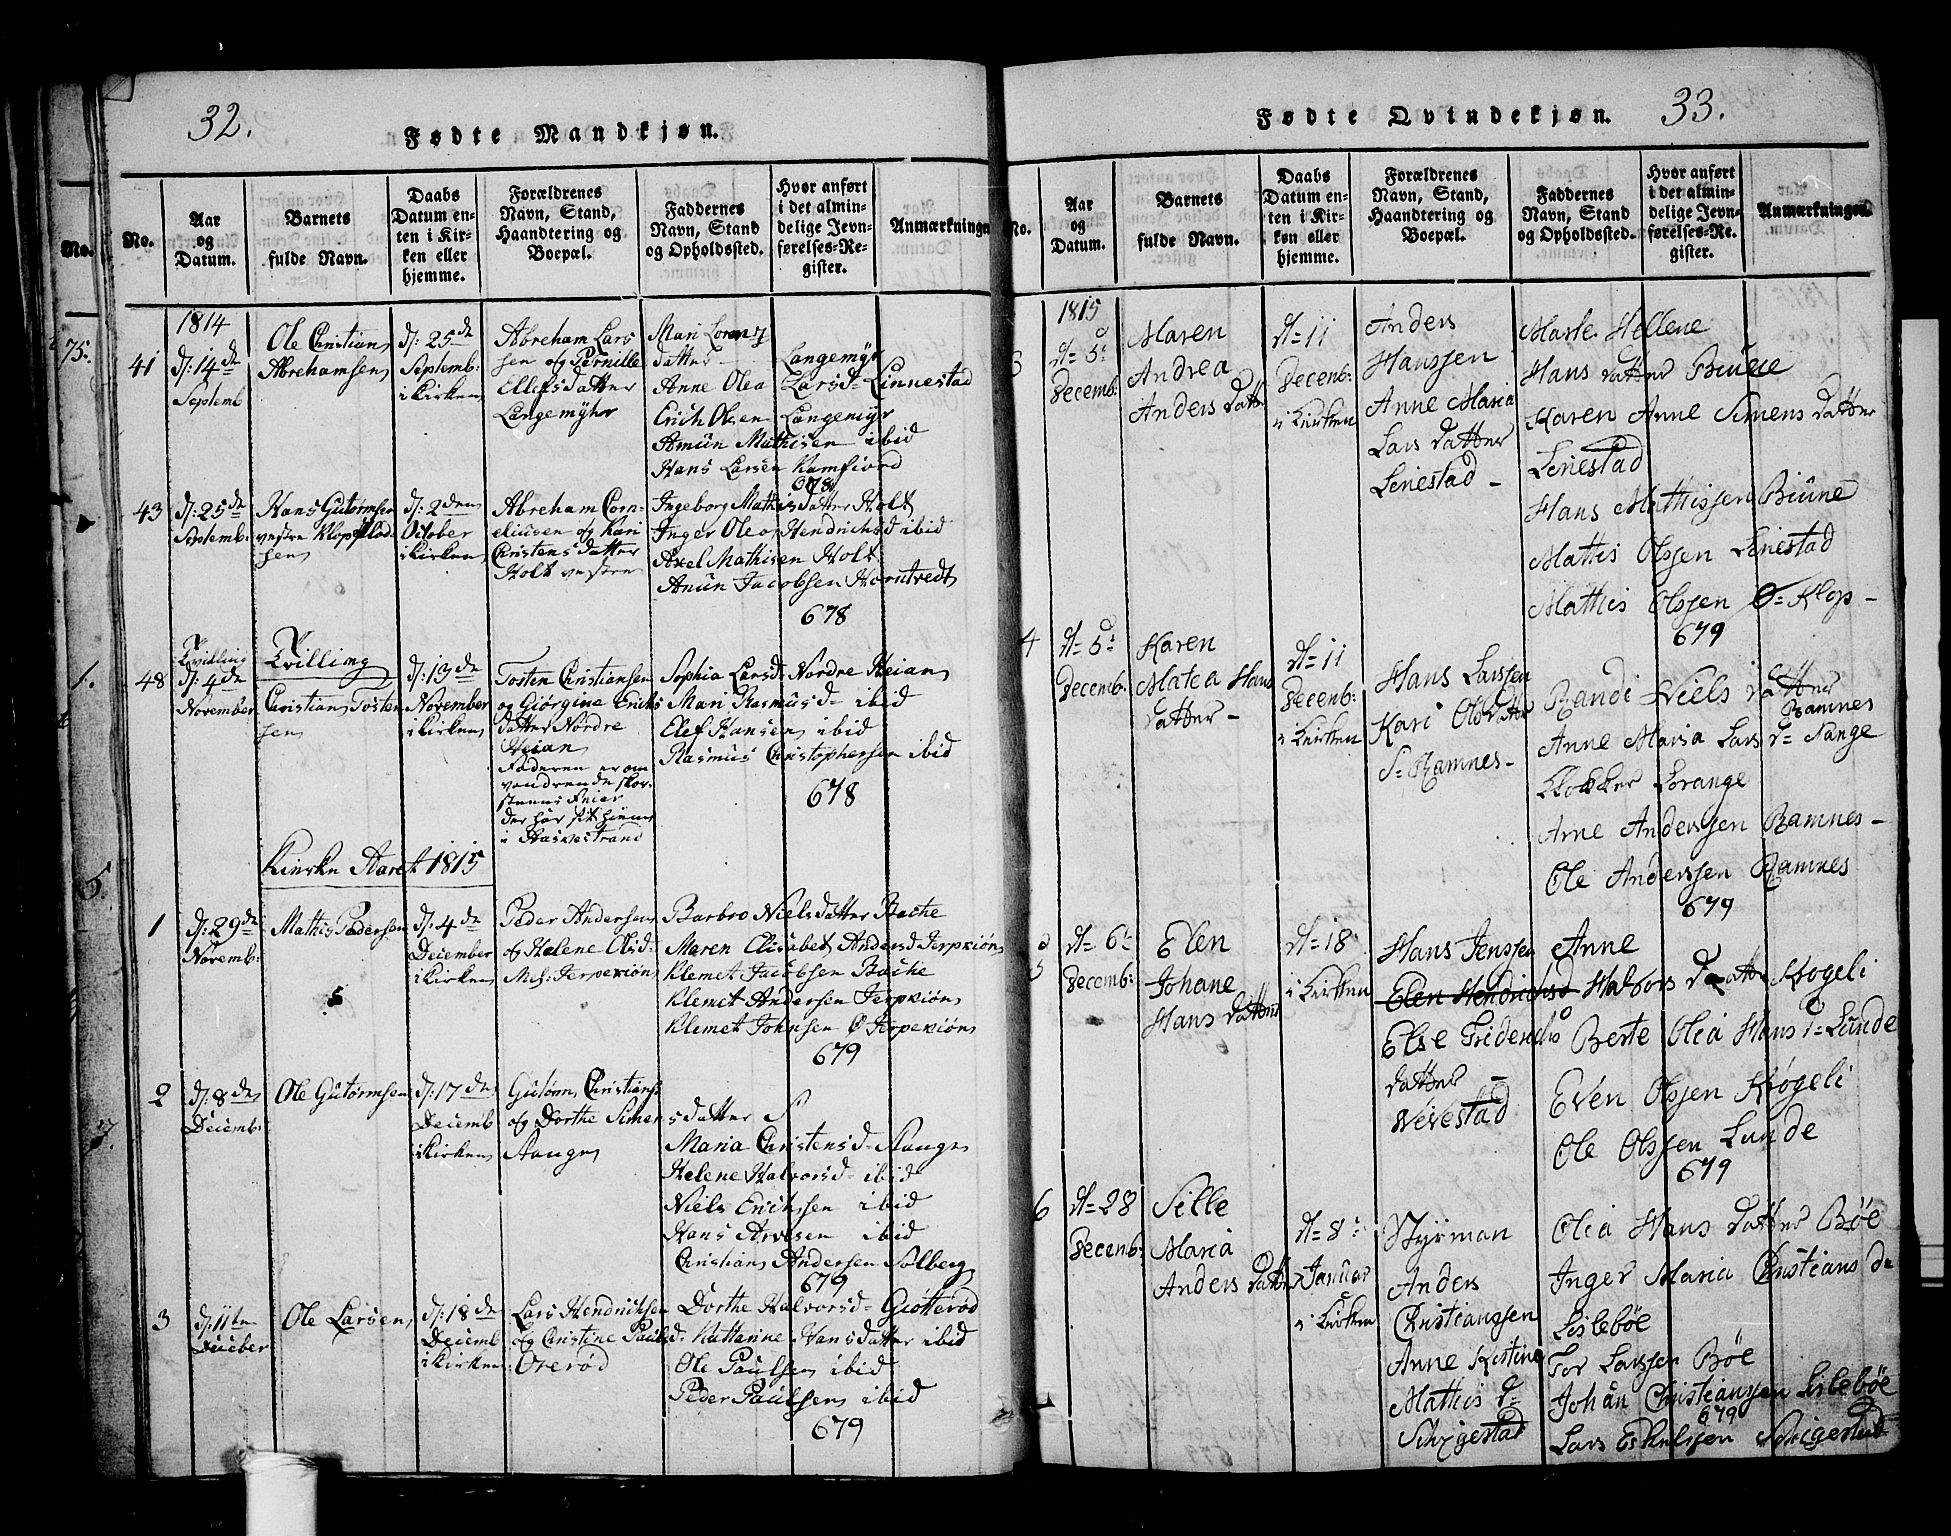 32.
Fødte Mandkjøn.
No.
Aar
og
Datum.
Barnets
fulde Navn.
Daabs
Datum en-
ten i Kir-
ken eller
hjemme.
Forældrenes
Navn, Stand,
Haandtering og
Boepæl.
Faddernes
Navn, Stand
og Opholdssted.
Hvor anført
i det almin-
delige Jevn-
førelses-Re-
gister.
Anmærkninger
1814
41
d: 14de
Septemb
Ole Christian
Abrehamsen
d: 25de
Septemb:
i Kirken
Abreham Lars
sen og Pernille
Ellefsdatter
Langemyhr
Mari Lorentz
datter Langemyr
Anne Olea Larsd= Linnestad
Erich Olsen Langemyr
Amun Mathisen ibid
Hans Larsen Ramfiord
678
43
d: 25de
Septemb:
Hans Gutormsen
vestre Klop
sen
d: 2den
October
i Kirken
Abreham Corn-
eliusen og Kari
Christensdatter
Holt vestre
Ingeborg Mathisdatter Holt
Inger Olea Hendrichsd ibid
Axel Mathisen Holt
Anun Jacobsen Horntvedt
678
48
Tvilling
d: 4de
November
Tvilling
Christian Tosten
sen
d: 13de
November
i Kirken
Tosten Christiansen
og Giørgine Erichs
datter Nordre
Heian
Faderen er om
vandrende skor-
steens Feier
der har sit hiem
i Haswestrand
Sophia Larsd= Nordre Heian
Mari Rasmusd= ibid
Elef Hansen ibid
Rasmus Christophersen ibid
678
Kirke Aaret 1815
1
d: 29de
Novemb:
Mathis Pedersen
d: 4de
December
i Kirken
Peder Andersen
og Helene Olsd:
Mel: Jerpekiøn
Barbro Nielsdatter Bache
Maren Elisabet Andersd Jerpekiøn
Klemet Jacobsen Bache
Klemet Andersen Jerpekiøn
Klemet Johnsen Ø Jerpekiøn
679
2
d: 8de
Decemb:
Ole Gutormsen
d: 17de
Decemb
i Kirken
Gutorm Christians:
og Dorthe Simen
Aauge
sdatter S
Maria Christensd= Aauge
Helene Halvorsd= ibid
Niels Erichsen ibid
Hans Arvesen ibid
Christian Andersen Solberg
679
3
d: 11te
December
Ole Larsen
d: 18de
Decemb
i Kirken
Lars Hendrichsen
og Christine Paulsd:
Overød
Dorthe Halvorsd= Giøtterød
Kattarine Hansdatter ibid
Ole Paulsen ibid
Peder Paulsen ibid
679
Fødte Qvindekjøn.
33.
No.
Aar
og
Datum.
Barnets
fulde Navn.
Daabs
Datum en-
ten i Kir-
ken eller
hjemme.
Forældrenes
Navn, Stand,
Haandtering og
Boepæl.
Faddernes
Navn, Stand
og Opholdssted.
Hvor anført
i det almin-
delige Jevn-
førelses-Re-
gister.
Anmærkninger.
1815
3
d= 5:
Decemb:
Maren
Andrea
Anders datter
d= 11
Decemb:
i Kirken
Anders
Hanssen
Anne Maria
Lars datter
Leriestad -
Marte Hellene
Hans datter Biune
Karen Anne Simens datter
Leniestad
Hans Mathissen Biune
Mattis Olssen Leniestad
Mathis Olssen Ø= Klop -
679
4
d= 5:
Decemb:
Karen
Matea Hans
datter -
d= 11
Decemb:
i Kirken
Hans Larssen
Kari Olsdatter
S= Ramnes -
Randi Niels datter
Ramnes
Anne Maria Lars d= Fange
Klokker Lorange
Arne Anderssen Ramnes -
Ole Anderssen Ramnes
679
5
d= 6:
Decemb:
Elen
Johane
Hans datter
d= 18
i Kirken
Hans Jenssen
Elen Hendrichsd
Else Friderichs
datter -
Vevestad
Anne
Halvors datter Krogeli
Berte Olia Hans d= Lunde
Even Olssen Krogeli
Ole Olssen Lunde
679
6
d= 28
Decemb:
Sille
Maria
Anders datter
d= 8:
Januar
i Kirken
Styrman
Anders
Christianssen
Anne Kistine
Mathis d=
Schiegestad
Olia Hans datter Bøe
Inger Maria Christians d=
Lislebøe
Tor Larssen Bøe
Johan Christianssen Lislebøe
679
Lars Eskelssen